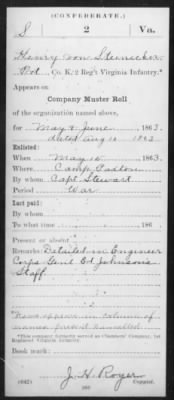 (CONFEDERATE.)
S 2 Va.
Henry von Steinecker
Pvt, Co. K, 2 Reg't Virginia Infantry.*
Appears on
Company Muster Roll
of the organization named above,
for May & June, 1863.
dated Aug 10 1863
Enlisted:
When May 10, 1863.
Where Camp Paxton
By whom Capt Stewart
Period War
Last paid:
By whom
To what time , 186 .
Present or absent
Remarks: Detailed in Engineer
Corps Genl Ed Johnson's
Staff
*This company formerly served as Chambers' Company, 1st
Regiment Virginia Infantry.
Book mark:
J. H. Royer
(642) Copyist.